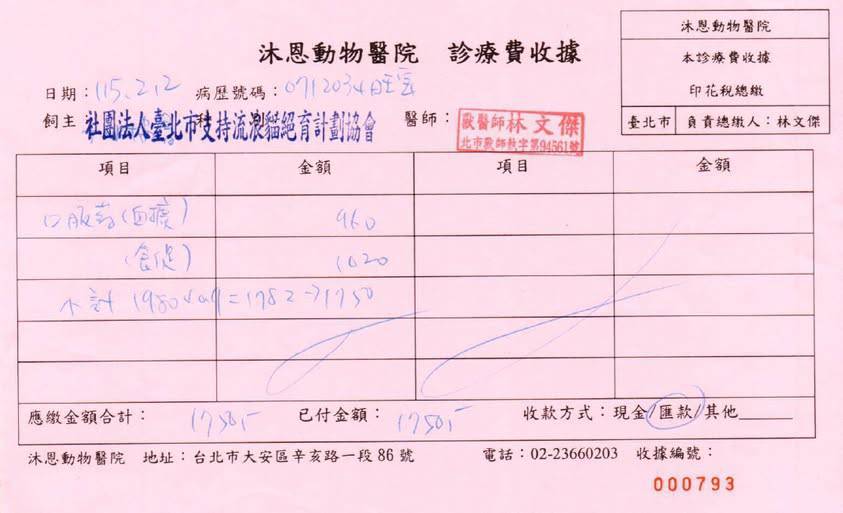 沐恩動物醫院 診療費收據
沐恩動物醫院
本診療費收據
印花稅總繳
臺北市 負責總繳人：林文傑
日期：115.2.12 病歷號碼：0712034
飼主 社團法人臺北市支持流浪貓絕育計劃協會 醫師：獸醫師林文傑
北市獸師執字第94561號
項目 金額 項目 金額
口服葯(血寶) 960
(食促) 1020
小計 1980×0.9=1782→1750
應繳金額合計：1750.- 已付金額：1750.- 收款方式：現金/匯款/其他
沐恩動物醫院 地址：台北市大安區辛亥路一段86號 電話：02-23660203 收據編號：
000793